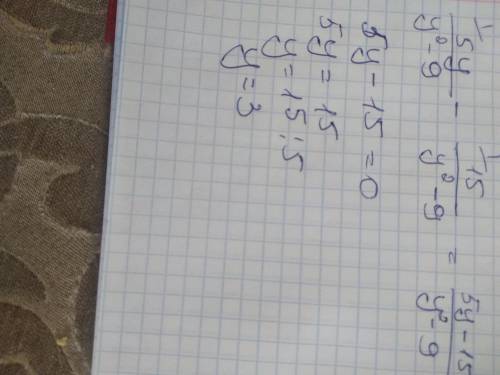 5y/y²-9 - 15/y²-9 = 5y-15/y²-9
5y-15=0
5y=15
y=15:5
y=3